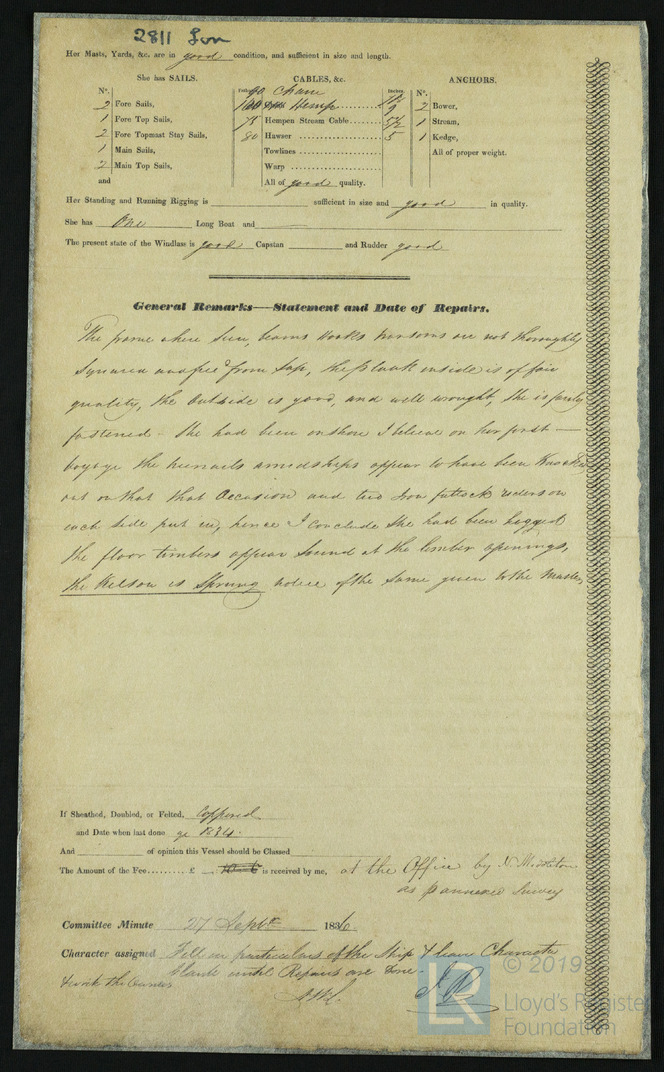 2811 Lon
Her Masts, Yards, &c. are in good condition, and sufficient in size and length.
She has SAILS.
CABLES, &c.
ANCHORS.
N°.
Fathoms
Inches
N°.
90 Chain
2 Fore Sails,
100 Hemp 9
2 Bower,
1 Fore Top Sails,
75 Hempen Stream Cable 5½
1 Stream,
2 Fore Topmast Stay Sails,
80 Hawser 5
1 Kedge,
1 Main Sails,
Towlines
All of proper weight.
2 Main Top Sails,
Warp
and
All of good quality.
Her Standing and Running Rigging is sufficient in size and good in quality.
She has One Long Boat and
The present state of the Windlass is good Capstan and Rudder good
General Remarks—Statement and Date of Repairs.
The frame where seen, beams Hooks transoms are not thoroughly
Squared and free from Sap, the plank inside is of fair
quality, the Outside is good, and well wrought, She is fairly
fastened - She had been on shore I believe on her first
voyage the tunnels amidships appear to have been knocked
out on that Occasion and two Iron futtock riders on
each side put in, hence I conclude She had been hogged
the floor timbers appear Sound at the limber openings,
the Kelson is Sprung notice of the same given to the Master,
If Sheathed, Doubled, or Felted, Coppered
and Date when last done 1834.
And of opinion this Vessel should be Classed
The Amount of the Fee £ is received by me, at the Office by N. Middleton
as p annexed Survey
Committee Minute 27 Septr 1836.
Character assigned Fill in particulars of the Ship & leave Character
blank until Repairs are done
& write the Owners
LR
© 2019
Lloyd's Register
Foundation